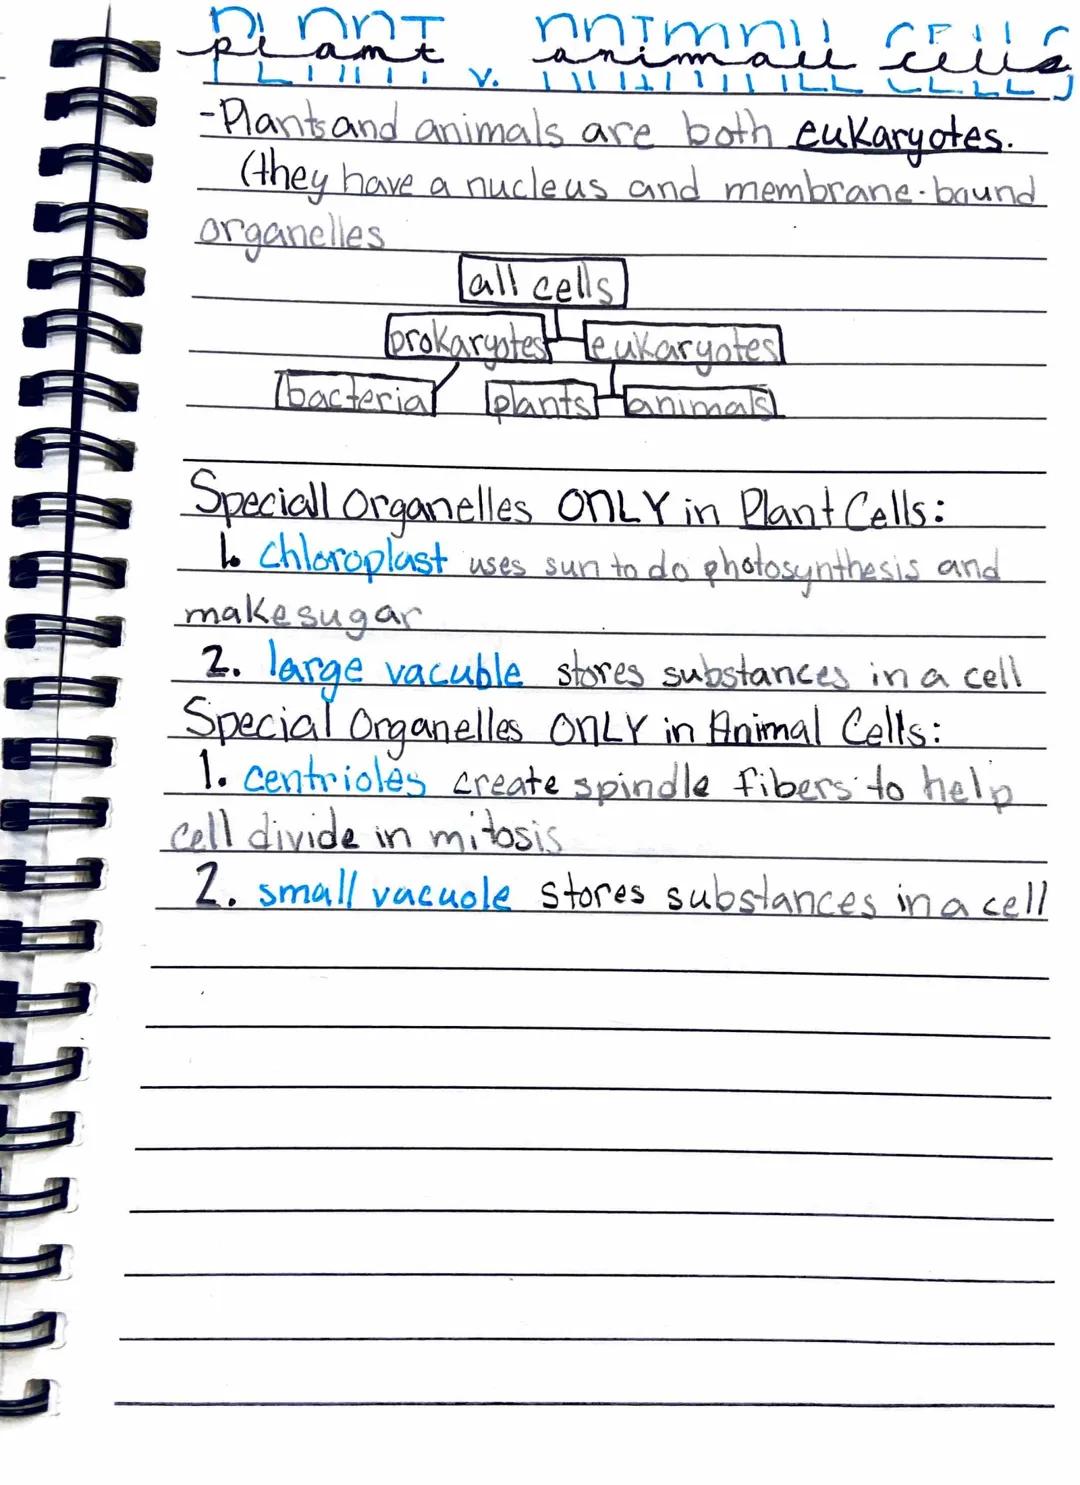 plant v. animall cells
-Plants and animals are both eukaryotes.
(they have a nucleus and membrane-bound
organelles
all cells
prokaryotes eukaryotes
bacteria plants animals
Speciall Organelles ONLY in Plant Cells:
1. Chloroplast uses sun to do photosynthesis and
make sugar
2. large vacuble stores substances in a cell
Special Organelles ONLY in Animal Cells:
1. centrioles create spindle fibers to help
cell divide in mitosis
2. small vacuole stores substances in a cell